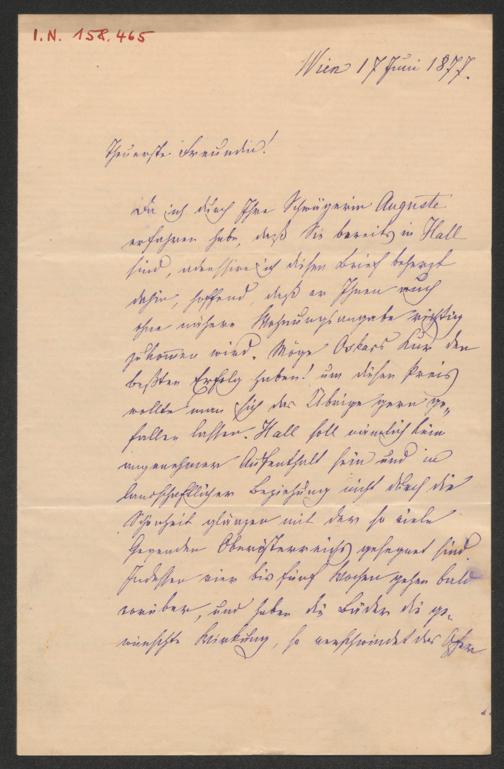 I.N. 158.465
Wien 17 Juni 1877.
Theuerste Freundin!
Da ich durch Ihre Schwägerin Auguste
erfahren habe, daß Sie bereits in Hall
sind, adressire ich diesen Brief
dahin, hoffend, daß er Ihnen auch
ohne nähere Wohnungsangabe richtig
zukommen wird. Möge Oskars Kur den
beßten Erfolg haben! um diesen Preis
wollte man sich das Übrige gern ge„
fallen lassen. Hall soll nämlich kein
angenehmer Aufenthalt sein und in
landschaftlicher Beziehung nicht durch die
Schönheit glänzen mit der so viele
Gegenden Oberösterreichs gesegnet sind.
Indessen vier bis fünf Wochen gehen bald
vorüber, und haben die Bäder die ge„
wünschte Wirkung, so verschwindet das